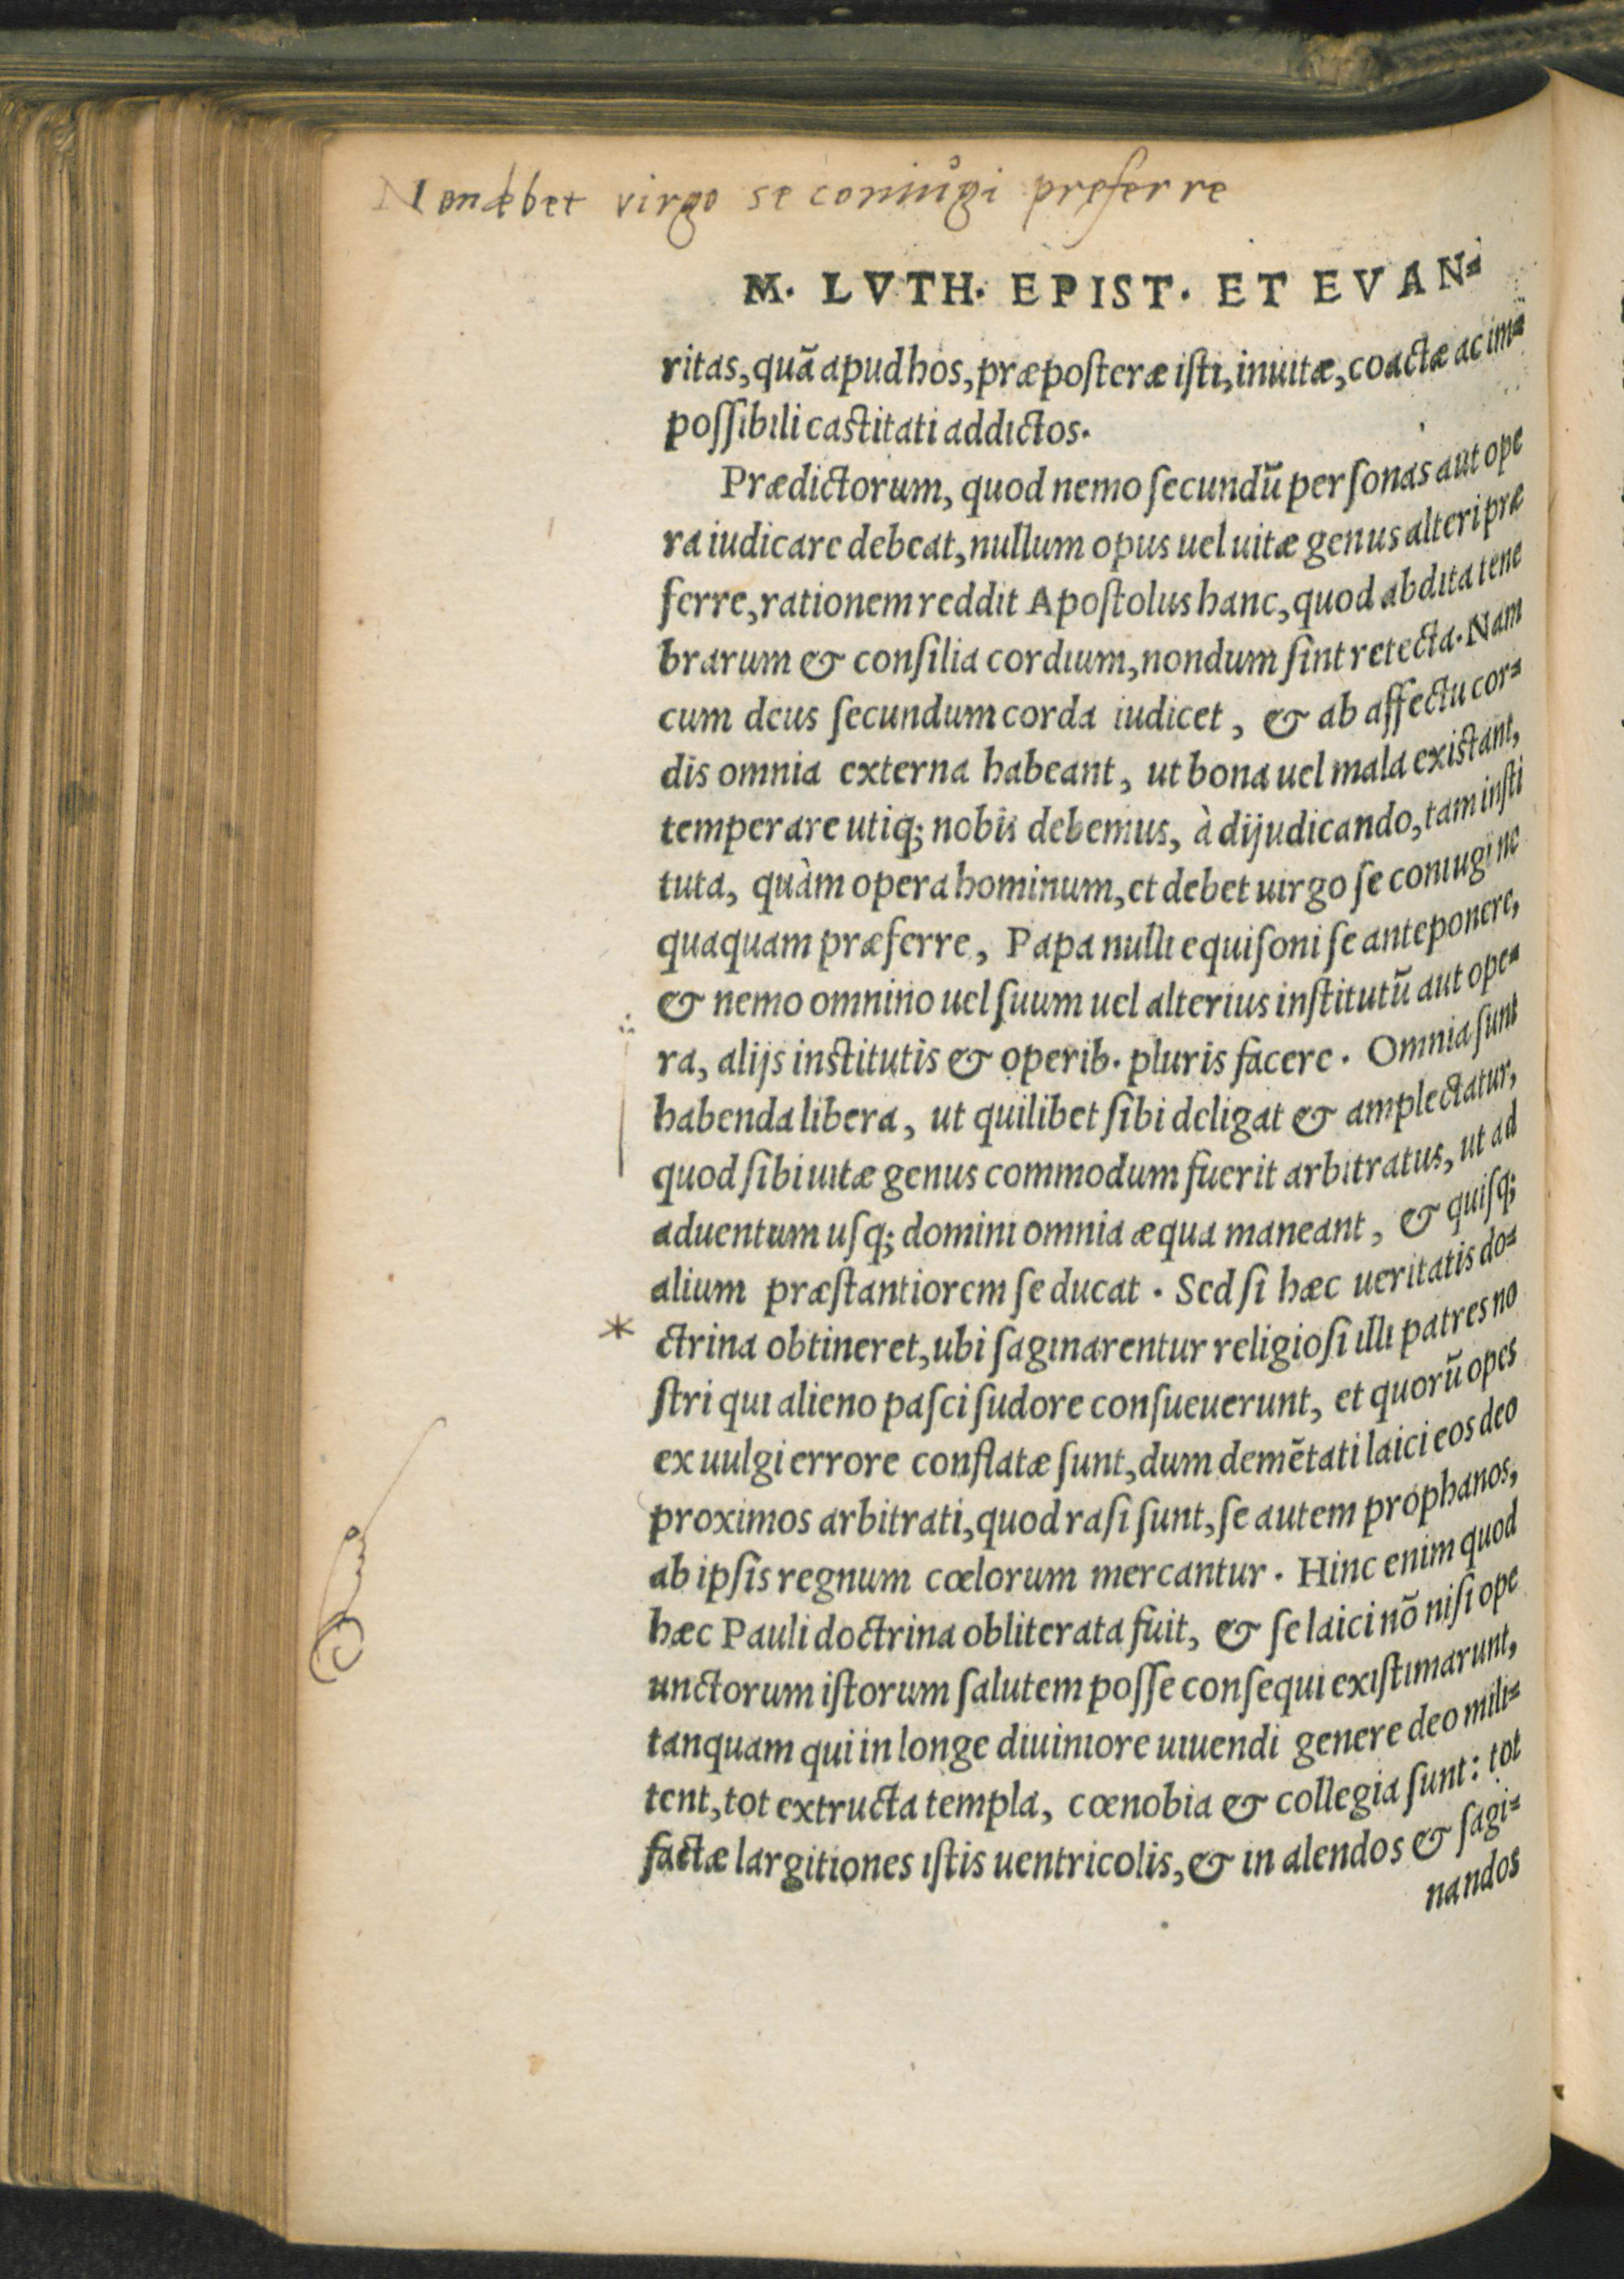 Non debet virgo se coniugi preferre
M. LVTH. EPIST. ET EVAN⸗
ritas, quã apud hos, præposteræ isti, inuitæ, coactæ ac im⸗
possibili castitati addictos.
Prædictorum, quod nemo secundũ personas aut ope
ra iudicare debeat, nullum opus uel uitæ genus alteri præ
ferre, rationem reddit Apostolus hanc, quod abdita tene
brarum & consilia cordium, nondum sint retecta. Nam
cum deus secundum corda iudicet, & ab affectu cor⸗
dis omnia externa habeant, ut bona uel mala existant,
temperare utiq; nobis debemus, à dijudicando, tam insti
tuta, quàm opera hominum, et debet uirgo se coniugi ne
quaquam præferre, Papa nulli equisoni se anteponere,
& nemo omnino uel suum uel alterius institutũ aut ope⸗
ra, alijs institutis & operib. pluris facere. Omnia sunt
habenda libera, ut quilibet sibi deligat & amplectatur,
quod sibi uitæ genus commodum fuerit arbitratus, ut ad
aduentum usq; domini omnia æqua maneant, & quisq;
alium præstantiorem se ducat. Sed si hæc ueritatis do⸗
* ctrina obtineret, ubi saginarentur religiosi illi patres no
stri qui alieno pasci sudore consueuerunt, et quorũ opes
ex uulgi errore conflatæ sunt, dum demẽtati laici eos deo
proximos arbitrati, quod rasi sunt, se autem prophanos,
ab ipsis regnum cœlorum mercantur. Hinc enim quod
hæc Pauli doctrina obliterata fuit, & se laici nõ nisi ope
unctorum istorum salutem posse consequi existimarunt,
tanquam qui in longe diuiniore uiuendi genere deo mili⸗
tent, tot extructa templa, cœnobia & collegia sunt: tot
factæ largitiones istis uentricolis, & in alendos & sagi⸗
nandos